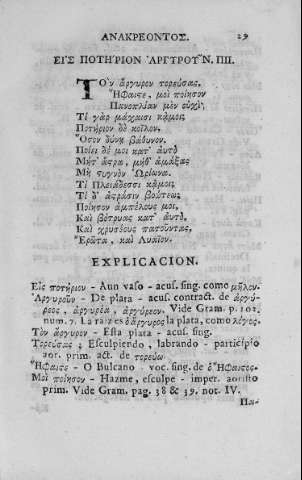 ΑΝΑΚΡΕΟΝΤΟΣ. 29
ΕΙ'Σ ΠΟΤΗ'ΡΙΟΝ ΑΡΓΥΡΟΥ͂Ν. ΠΙΙ.
ΤῸν ἄργυρον τορεύσας,
Ἥφαιστε, μοὶ ποίησον
Πανοπλίαν μὲν οὐχὶ,
Τί γὰρ μάχαισι κἀμοί;
Ποτήριον δὲ κοῖλον,
Ὅσον δύνῃ βάθυνον.
Ποίει δέ μοι κατ' αὐτὸ
Μήτ' ἄστρα, μήθ' ἁμάξας
Μὴ στυγνὸν Ὠρίωνα.
Τί Πλειάδεσσι κἀμοί;
Τί δ' ἄστρασιν βοώτεω;
Ποίησον ἀμπέλους μοι,
Καὶ βότρυας κατ' αὐτὸ,
Καὶ χρυσέους πατοῦντας,
Ἔρωτα, καὶ Λυαῖον.
EXPLICACION.
Εἰς ποτήριον - A un vaso - acus. sing. como μῆλον.
Ἀργυροῦν - De plata - acus. contract. de ἀργύ-
ρεος, ἀργυρέα, ἀργύρεον. Vide Gram. p. 102.
num. 7. La raiz es ὁ ἄργυρος la plata, como λόγος.
Τὸν ἄργυρον - Esta plata - acus. sing.
Τορεύσας; Esculpiendo, labrando - participio
aor. prim. act. de τορεύω
Ἥφαιστε - O Bulcano - voc. sing. de ὁ Ἥφαιστος.
Μοὶ ποίησον - Hazme, esculpe - imper. aoristo
prim. Vide Gram. pag. 38 & 39. not. IV.
Πα-